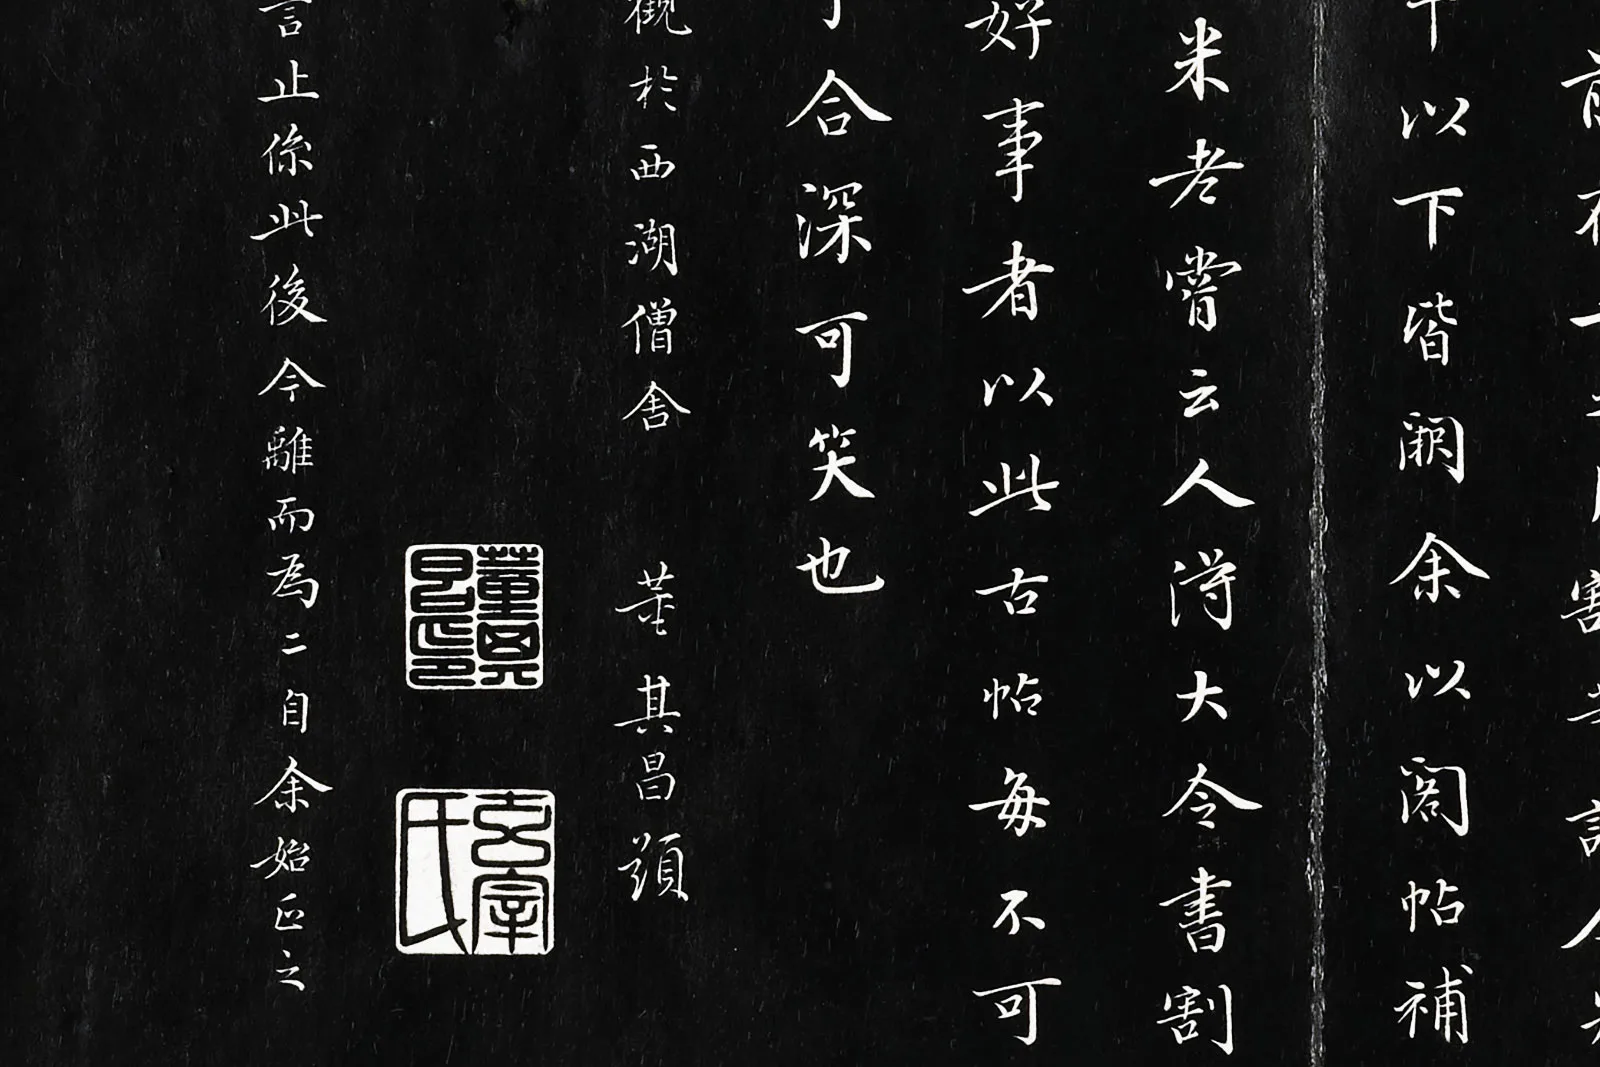 割
以下皆闕余以閣帖補
米老嘗云人得大令書割
好事者以此古帖每不可
合深可笑也
觀於西湖僧舍 董其昌題
董其昌印
太宰氏
言止係此後今離而為二自余始正之